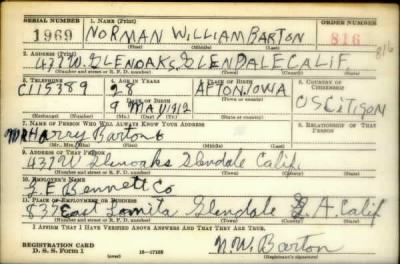 SERIAL NUMBER 1. NAME (Print) ORDER NUMBER
1969 NORMAN WILLIAM BARTON 816
(First) (Middle) (Last)
2. ADDRESS (Print) 816
437 W. GLENOAKS, GLENDALE CALIF.
(Number and street or R. F. D. number) (Town) (County) (State)
3. TELEPHONE 4. AGE IN YEARS 5. PLACE OF BIRTH 6. COUNTRY OF CITIZENSHIP
C115389 28 AFTON, IOWA
DATE OF BIRTH (Town or county)
9 MA 1912 US CITISON
(Exchange) (Number) (Mo.) (Day) (Yr.) (State or country)
7. NAME OF PERSON WHO WILL ALWAYS KNOW YOUR ADDRESS 8. RELATIONSHIP OF THAT PERSON
Mr Harry Barton
(Mr., Mrs., Miss) (First) (Middle) (Last)
9. ADDRESS OF THAT PERSON
437 W Glenoaks Glendale Calif.
(Number and street or R. F. D. number) (Town) (County) (State)
10. EMPLOYER'S NAME
Bennett Co
11. PLACE OF EMPLOYMENT OR BUSINESS
East Lomita Glendale L.A. Calif
(Number and street or R. F. D. number) (Town) (County) (State)
I AFFIRM THAT I HAVE VERIFIED ABOVE ANSWERS AND THAT THEY ARE TRUE.
REGISTRATION CARD
D. S. S. Form 1 16—17105 N. W. Barton
(Registrant's signature)